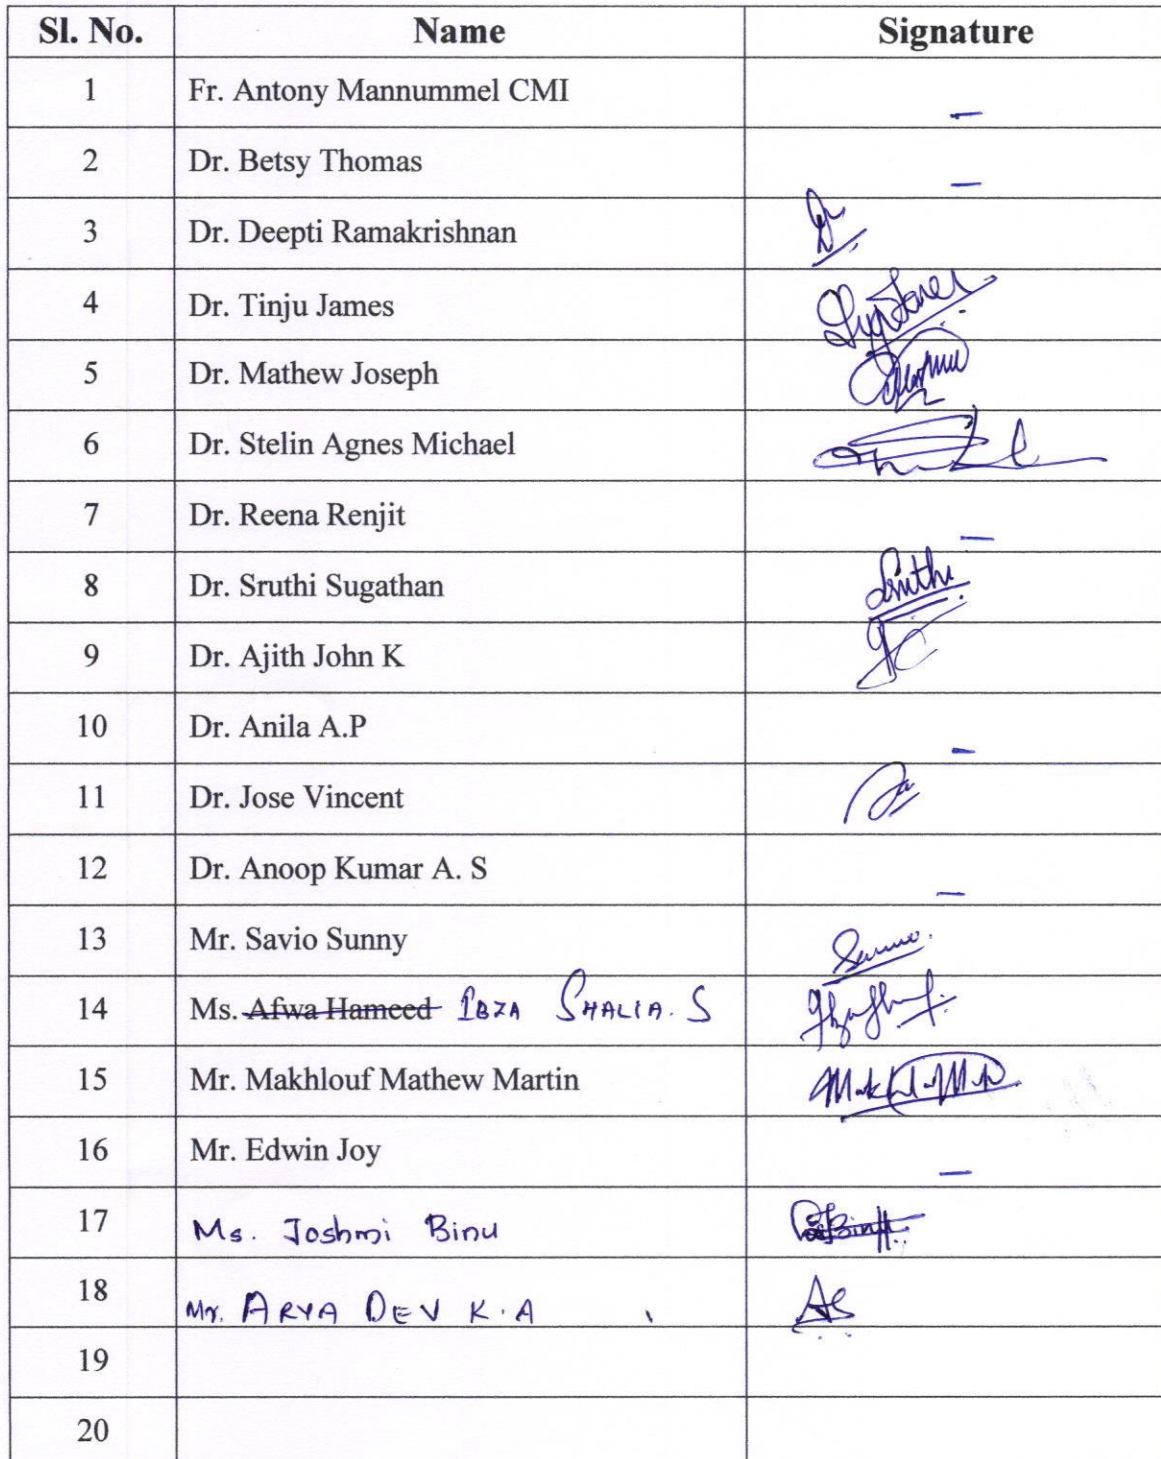 Sl. No. Name Signature
1 Fr. Antony Mannummel CMI –
2 Dr. Betsy Thomas –
3 Dr. Deepti Ramakrishnan
4 Dr. Tinju James
5 Dr. Mathew Joseph
6 Dr. Stelin Agnes Michael
7 Dr. Reena Renjit –
8 Dr. Sruthi Sugathan Sruthi
9 Dr. Ajith John K
10 Dr. Anila A.P –
11 Dr. Jose Vincent
12 Dr. Anoop Kumar A. S –
13 Mr. Savio Sunny
14 Ms. Afwa Hameed IBZA SHALIA. S
15 Mr. Makhlouf Mathew Martin
16 Mr. Edwin Joy –
17 Ms. Joshmi Binu
18 Mr. ARYA DEV K.A
19
20